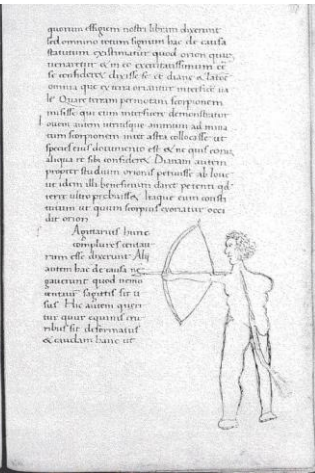 quorum effigiem nostri libram dixerunt
sed omnino totum signum hac de causa
statutum existimatur quod orion quum
uenaretur & in eo exercitatissimum
se confideret dixisse se et dianae & latonae
omnia quae ex terra oriantur interficere
Quare terram permotam scorpionem
misisse qui eum interficere demonstratur
iouem autem utriusque animum
tum scorpionem inter astra collocasse ut
species eius documento esset ne quis eorum
aliqua re sibi confideret Dianam autem
propter studium orionis petiuisse ab Ioue
ut idem illi beneficium daret petenti
Itaque eum
tutum ut quum scorpius exoriatur occi
dit orion
Agittarius hunc
complures centau
rum esse dixerunt Alii
autem hac de causa ne
gauerunt quod nemo
centaurus sagittis sit u
sus Hic autem queri
tur quur equinis cru
ribus sit deformatus
& caudam hanc ut